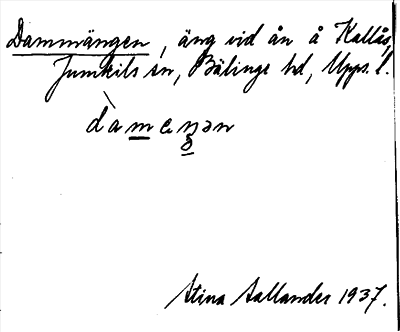 Dammängen, äng vid ån å Kallås,
Jumkils sn, Bälinge hd, Upps. l.
dàmenən
Stina Aallander 1937.